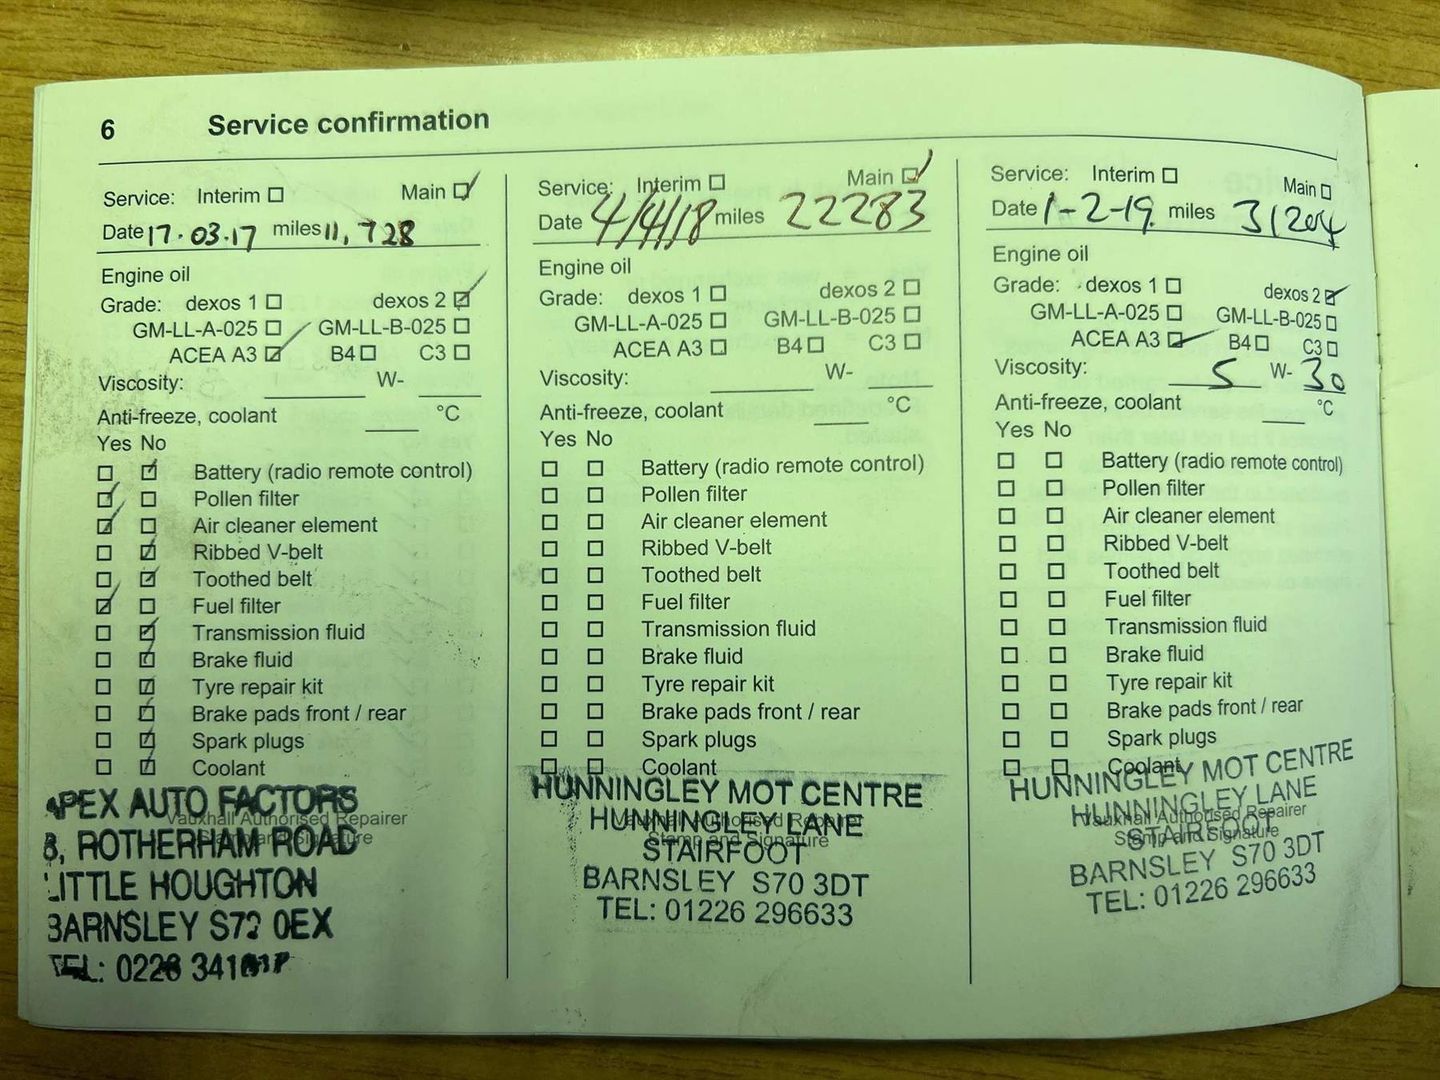 6 Service confirmation
Service: Interim Main
Date 17.03.17 miles 11,728
Engine oil
Grade: dexos 1 dexos 2
GM-LL-A-025 GM-LL-B-025
ACEA A3 B4 C3
Viscosity: W-
Anti-freeze, coolant °C
Yes No
Battery (radio remote control)
Pollen filter
Air cleaner element
Ribbed V-belt
Toothed belt
Fuel filter
Transmission fluid
Brake fluid
Tyre repair kit
Brake pads front / rear
Spark plugs
Coolant
APEX AUTO FACTORS
Vauxhall Authorised Repairer
Stamp and Signature
ROTHERHAM ROAD
LITTLE HOUGHTON
BARNSLEY 0EX
TEL:
Service: Interim Main
Date 4/4/18 miles 22283
Engine oil
Grade: dexos 1 dexos 2
GM-LL-A-025 GM-LL-B-025
ACEA A3 B4 C3
Viscosity: W-
Anti-freeze, coolant °C
Yes No
Battery (radio remote control)
Pollen filter
Air cleaner element
Ribbed V-belt
Toothed belt
Fuel filter
Transmission fluid
Brake fluid
Tyre repair kit
Brake pads front / rear
Spark plugs
Coolant
HUNNINGLEY MOT CENTRE
Vauxhall Authorised Repairer
HUNNINGLEY LANE
Stamp and Signature
STAIRFOOT
BARNSLEY S70 3DT
TEL: 01226 296633
Service: Interim Main
Date 1-2-19 miles 31204
Engine oil
Grade: dexos 1 dexos 2
GM-LL-A-025 GM-LL-B-025
ACEA A3 B4 C3
Viscosity: 5 W- 30
Anti-freeze, coolant °C
Yes No
Battery (radio remote control)
Pollen filter
Air cleaner element
Ribbed V-belt
Toothed belt
Fuel filter
Transmission fluid
Brake fluid
Tyre repair kit
Brake pads front / rear
Spark plugs
Coolant
HUNNINGLEY MOT CENTRE
HUNNINGLEY LANE
Vauxhall Authorised Repairer
STAIRFOOT
Stamp and Signature
BARNSLEY S70 3DT
TEL: 01226 296633